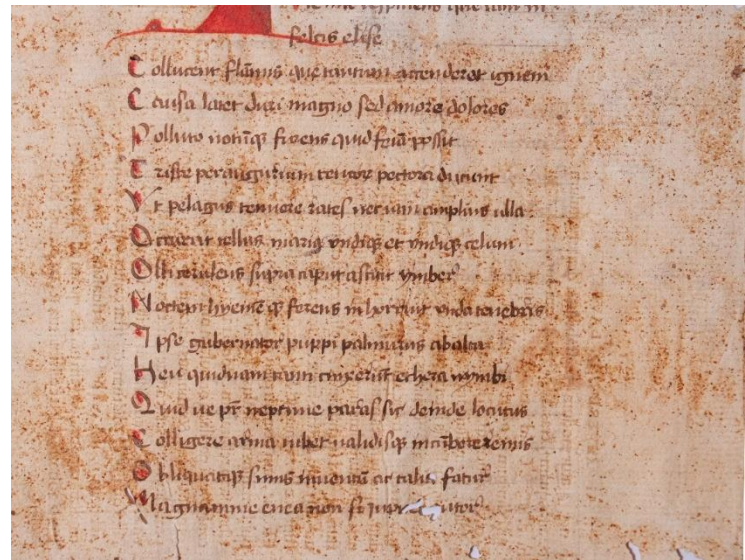 felicis elise
Collucent flamis que tantum accenderat ignem
Causa latet duri magno sed amore dolores
Polluto notumq furens quid feia possit
Triste per augurium teucror pectora ducunt
Ut pelagus tenuere rates nec iam amplius ulla
Occurrit tellus maria undiq et undiq celum
Olli ceruleus supra caput astitit ymber
Noctem hyememq ferens inhorruit unda tenebris
Ipse gubernator puppi palinurus ab alta
Heu quidnam tanti cinxerut ethera nymbi
Quid ve pr neptune paras sic deinde locutus
Colligere arma iubet validisq incubere remis
Obliquatq sinus in ventu ac talia fatur
Magnanime enea non si iupiter